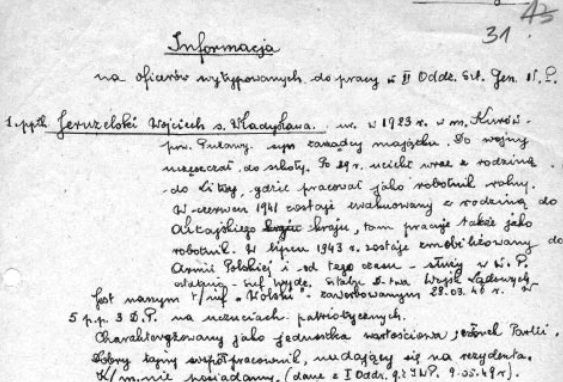 43
31
Informacja
na oficerów wytypowanych do pracy w II Oddz. Szt. Gen. W.P.
1. ppłk Jeruzelski Wojciech s. Władysława. ur. w 1923 r. w m. Kurów
pow. Puławy. syn zarządcy majątku. Do wojny
uczęszczał do szkoły. Po 39 r. uciekł wraz z rodziną
do Litwy, gdzie pracował jako robotnik rolny.
W czerwcu 1941 zostaje ewakuowany z rodziną do
Ałtajskiego kraju, tam pracuje także jako
robotnik. W lipcu 1943 r. zostaje zmobilizowany do
Armii Polskiej i od tego czasu - służy w W.P.
ostatnio - szef Wydz. Sztabu D-twa Wojsk Lądowych
Jest naszym t/inf "Wolski" - zawerbowanym 23.03.46 r. w
5 p.p. 3 D.P. na uczuciach patriotycznych.
Charakteryzowany jako jednostka wartościowa, członek Partii.
Dobry tajny współpracownik, nadający się na rezydenta.
K/m.nie posiadamy. (dane z I Oddz. GZIWP. 9.05.49 r).